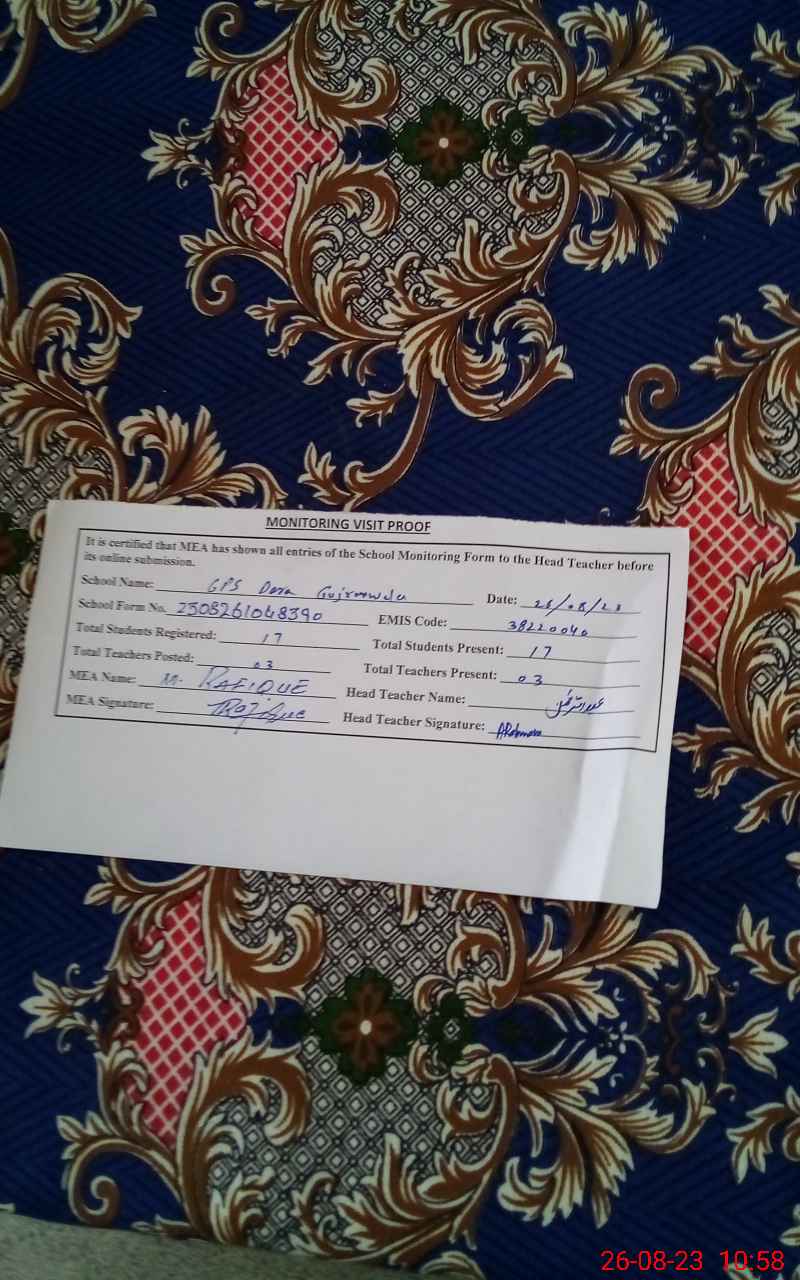 MONITORING VISIT PROOF
It is certified that MEA has shown all entries of the School Monitoring Form to the Head Teacher before
its online submission.
School Name: GPS Dera Gujranwala Date: 26/08/23
School Form No. 2308261048390 EMIS Code: 38220040
Total Students Registered: 17 Total Students Present: 17
Total Teachers Posted: 03 Total Teachers Present: 03
MEA Name: M. RAFIQUE Head Teacher Name: عبدالرحمٰن
MEA Signature: Head Teacher Signature: ARahman
26-08-23 10:58